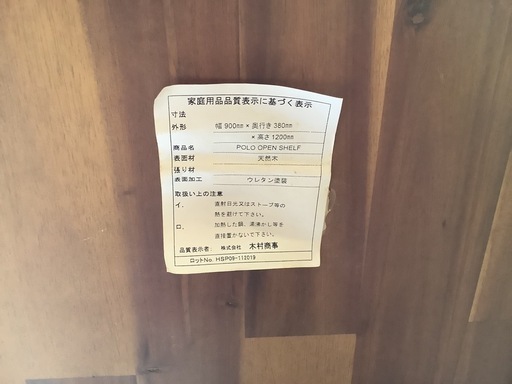 家庭用品品質表示に基づく表示
寸法
外形 幅900mm×奥行き380mm
×高さ1200mm
商品名 POLO OPEN SHELF
表面材 天然木
張り材
表面加工 ウレタン塗装
取扱い上の注意
イ. 直射日光又はストーブ等の
熱を避けて下さい。
ロ. 加熱した鍋、湯沸かし等を
直接置かないで下さい。
品質表示者: 株式会社 木村商事
ロットNo. HSP09-112019